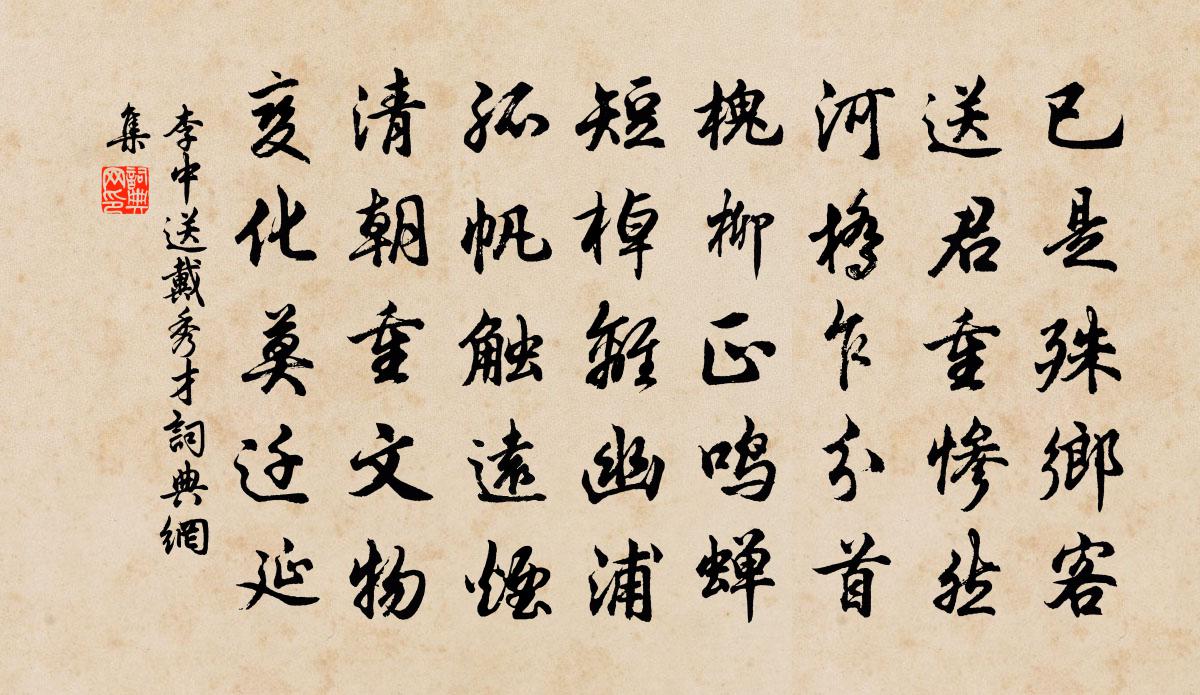 已是殊鄉客
送君重慘然
河橋乍分首
槐柳正鳴蝉
短棹離幽浦
孤帆触遠煙
清朝重文物
变化莫迁延
李中送戴秀才詞典網
集
詞典
网印